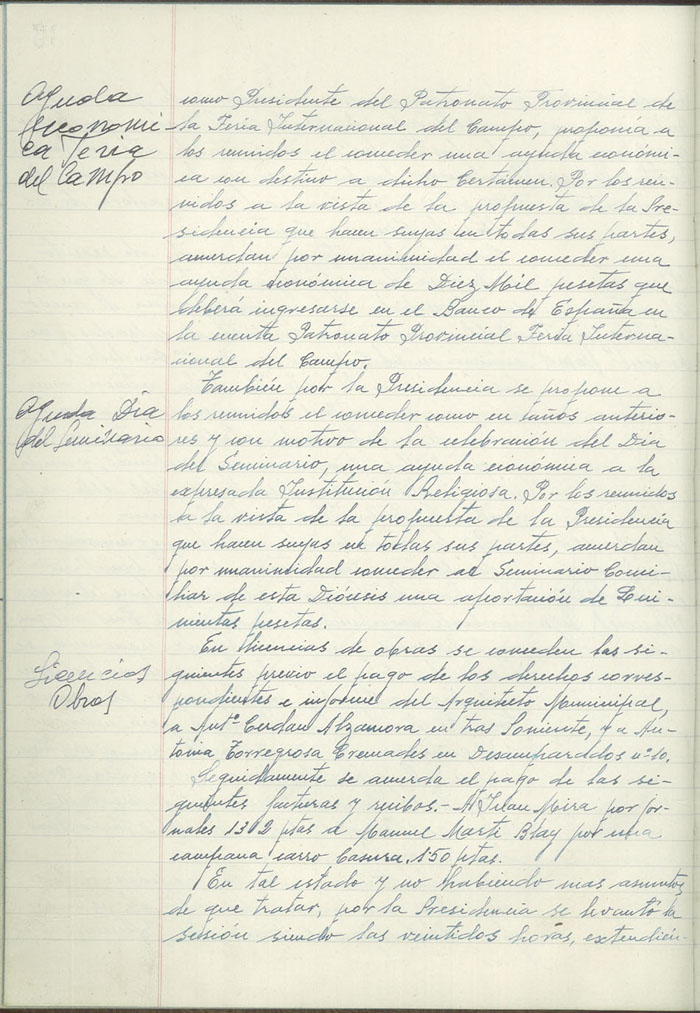 Ayuda
Economi
ca Feria
del Campo
como Presidente del Patronato Provincial de
la Feria Internacional del Campo, proponía a
los reunidos el conceder una ayuda económi-
ca con destino a dicho Certámen. Por los reu-
nidos a la vista de la propuesta de la Pre-
sidencia que hacen suyas en todas sus partes,
acuerdan por unanimidad el conceder una
ayuda económica de Diez Mil pesetas que
deberá ingresarse en el Banco de España en
la cuenta Patronato Provincial Feria Interna-
cional del Campo.
Ayuda Dia
del Seminario
También por la Presidencia se propone a
los reunidos el conceder como en años anterio-
res y con motivo de la celebración del Dia
del Seminario, una ayuda económica a la
expresada Institución Religiosa. Por los reunidos
a la vista de la propuesta de la Presidencia
que hacen suyas en todas sus partes, acuerdan
por unanimidad conceder al Seminario Conci-
liar de esta Diócesis una aportación de Qui-
nientas pesetas.
Licencias
Obras
En licencias de obras se conceden las si-
guientes previo el pago de los derechos corres-
pondientes e informe del Arquitecto Municipal,
a Antº Cerdan Alzamora en tras Poniente, y a An-
tonia Torregrosa Cremades en Desamparados nº 10.
Seguidamente se acuerda el pago de las si-
guientes facturas y recibos.- A Juan Mira por jor-
nales 1302 ptas a Manuel Marti Blay por una
campana carro basura, 150 ptas.
En tal estado y no habiendo mas asuntos
de que tratar, por la Presidencia se levantó la
sesión siendo las veintidos horas, extendién-